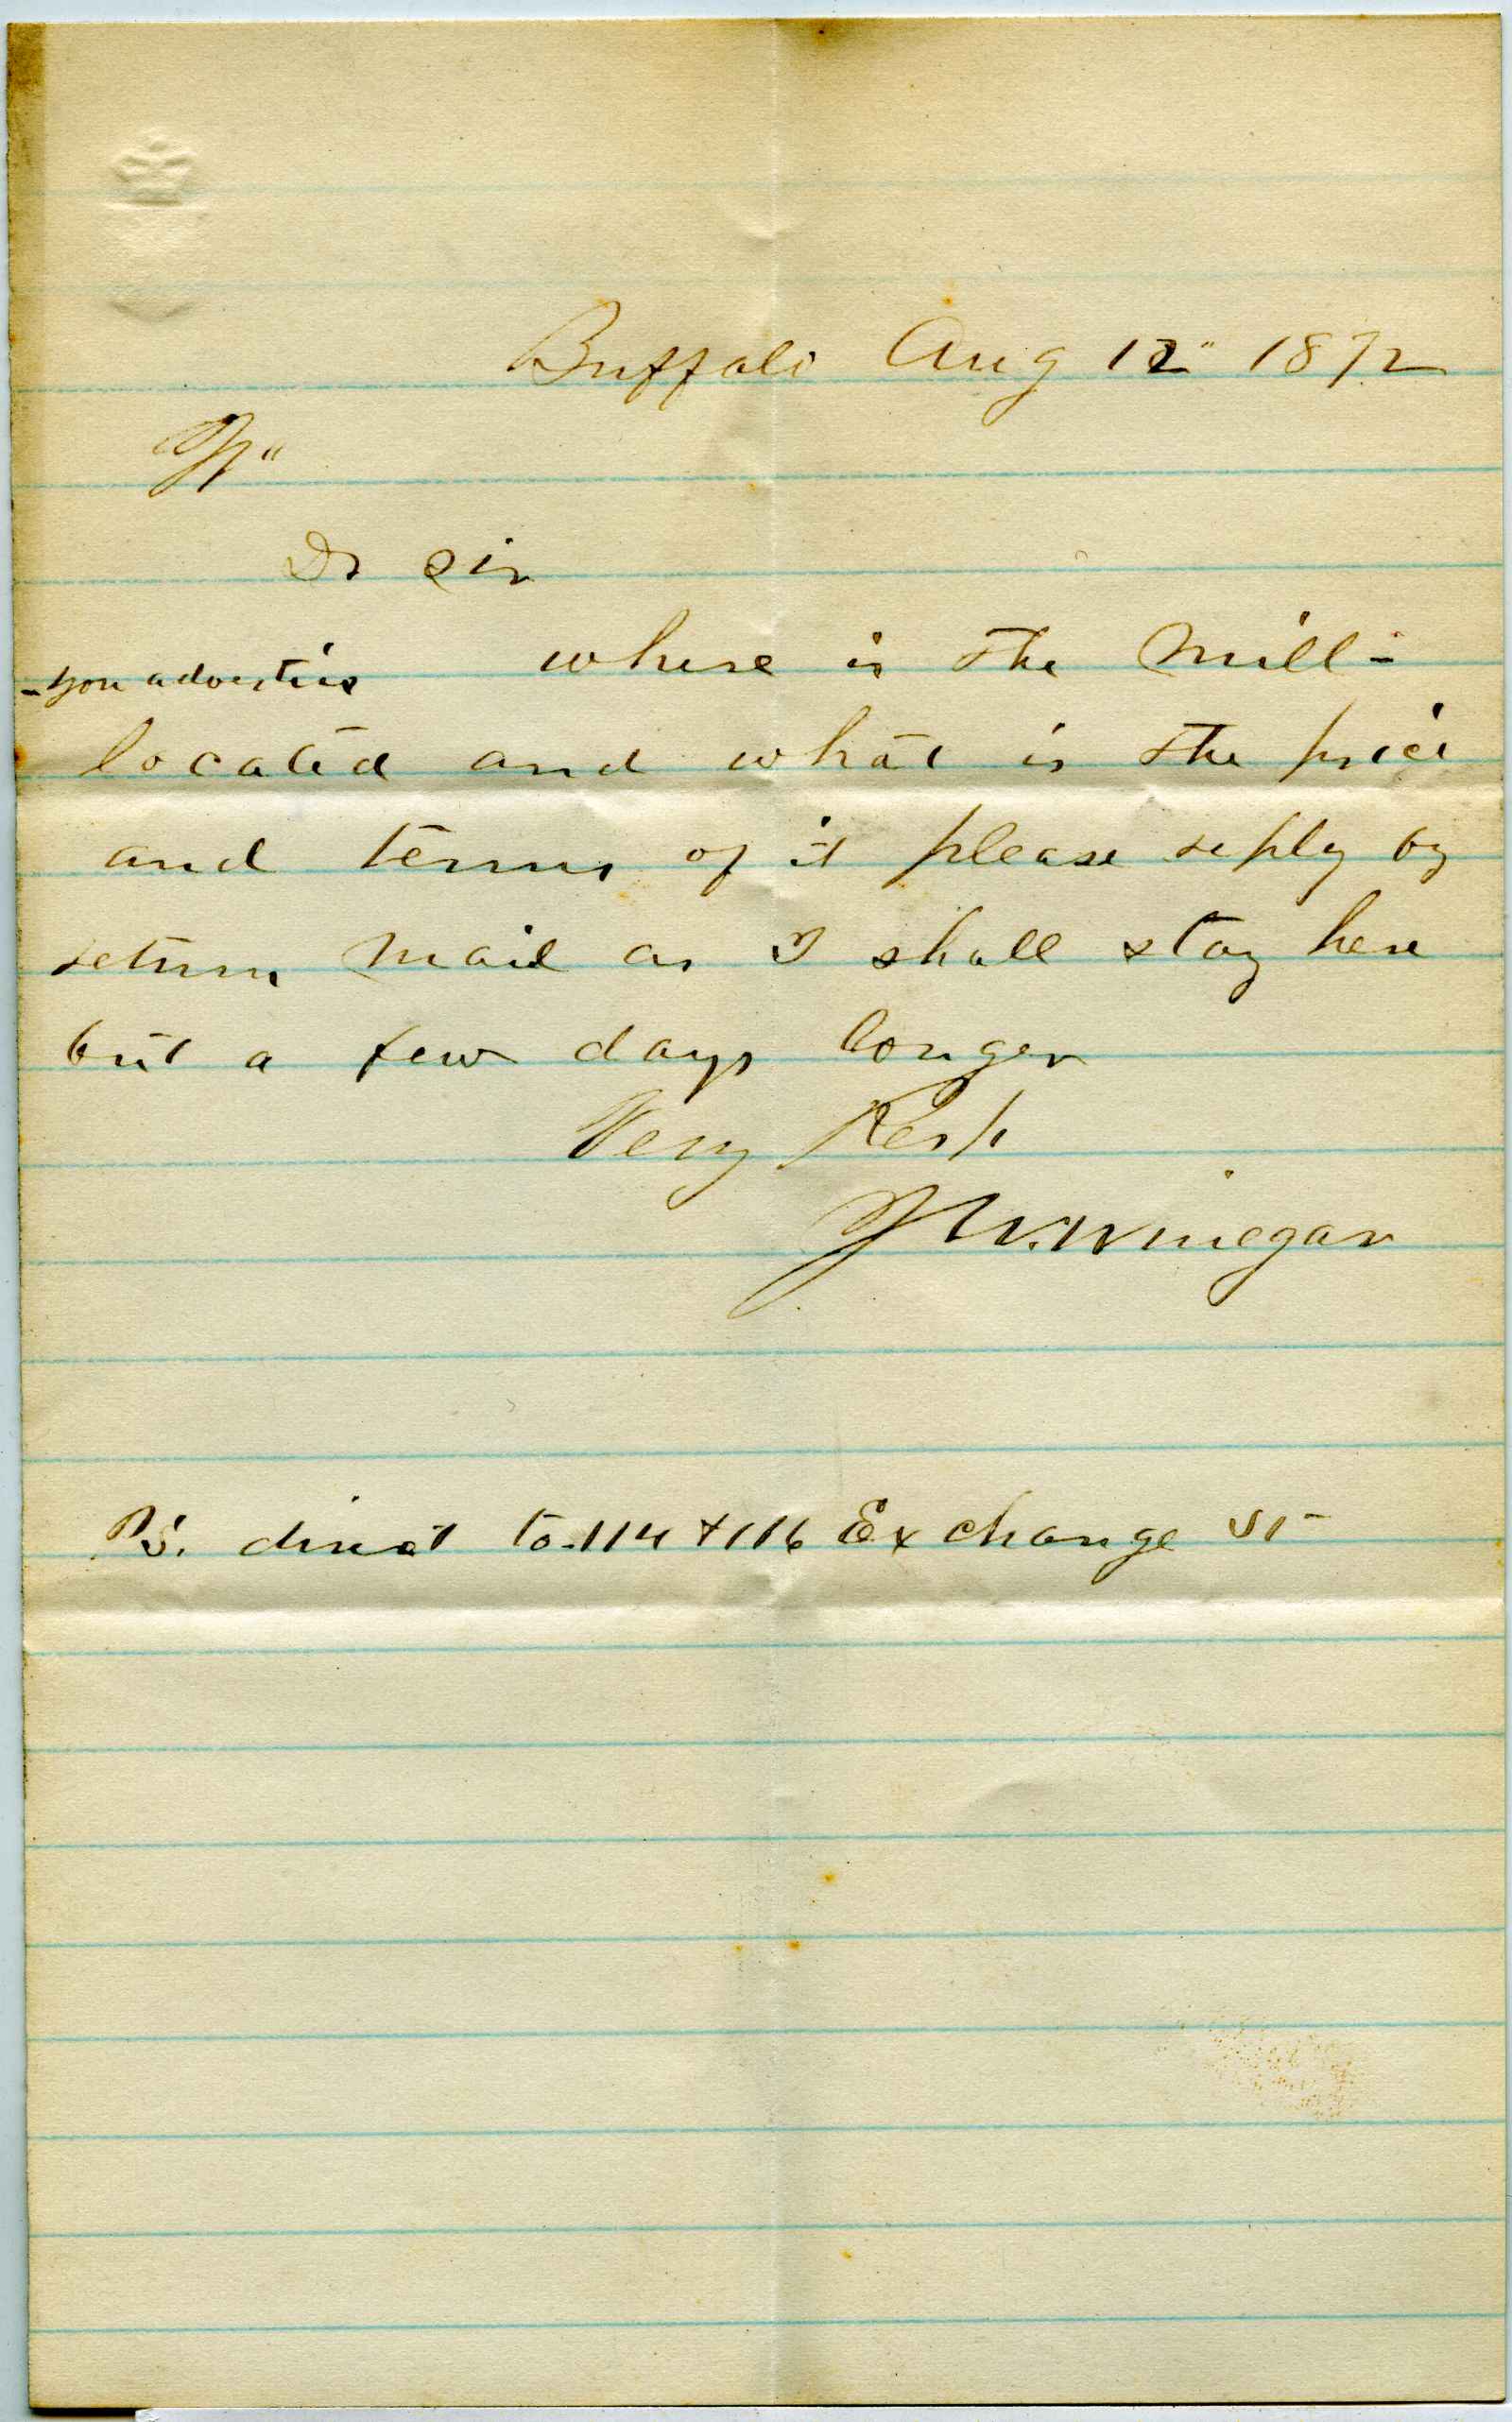 Buffalo Aug 12" 1872
H"
Dr Sir
where is the Mill-
-you advertise
located and what is the price
and terms of it please reply by
return mail as I shall stay here
but a few days longer
Very Resp
J W. Winegar
P.S. direct to 114 + 116 Exchange St